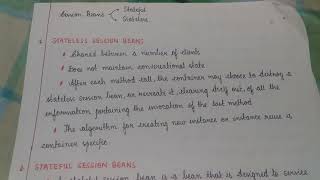 Session Beans
Stateful
Stateless
1. STATELESS SESSION BEANS
• Shared between a number of clients
• Does not maintain conversational state
• After each method call, the container may choose to destroy a
stateless session bean, or recreate it, clearing itself out, of all the
information pertaining the invocation of the last method
• The algorithm for creating new instance or instance reuse is
container specific.
2. STATEFUL SESSION BEANS
stateful session bean is a bean that is designed to service